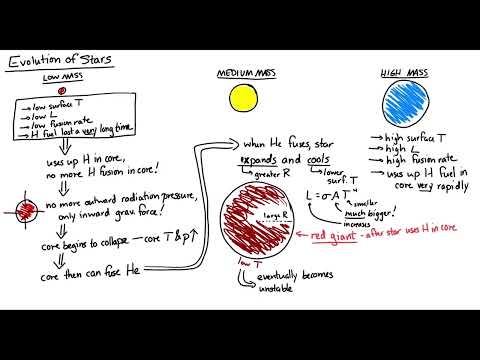 Evolution of Stars
LOW MASS
→ low surface T
→ low L
→ low fusion rate
→ H fuel lasts a very long time
uses up H in core,
no more H fusion in core!
no more outward radiation pressure,
only inward grav. force!
core begins to collapse — core T & p↑
core then can fuse He
MEDIUM MASS
when He fuses, star
expands and cools
greater R
lower
surf. T
L = σ A T⁴
smaller
much bigger!
increases
large R
low T
red giant - after star uses H in core
eventually becomes
unstable
HIGH MASS
→ high surface T
→ high L
→ high fusion rate
→ uses up H fuel in
core very rapidly